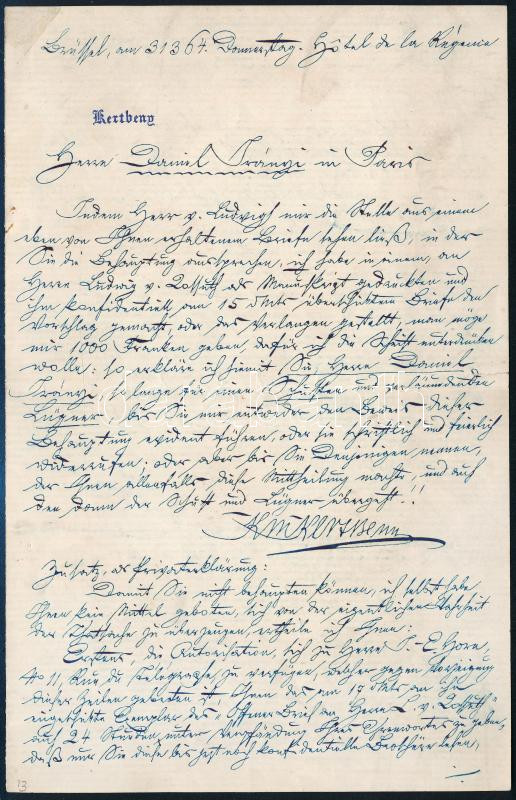 Brüssel, am 31 3 64. Donnerstag. Hôtel de la Régence
Kertbeny
Herrn Daniel Irányi in Paris
Indem Herr v. Ludvigh mir die Stelle aus einem
eben von Ihnen erhaltenem Briefe lesen ließ, in der
Sie die Behauptung aussprechen, ich habe in einem, an
Herrn Ludwig v. Kossuth als Manuskript gedruckten und
ihm konfidentiell am 15 dMts überschickten Briefe den
Vorschlag gemacht, oder das Verlangen gestellt, man möge
mir 1000 Franken geben, dafür ich die Schrift unterdrücken
wolle: so erkläre ich hiemit Sie, Herr Daniel
Irányi, so lange für einen Schuften und verläumdenden
Lügner bis Sie mir entweder den Beweis dieser
Behauptung evident führen, oder sie schriftlich und feierlich
widerrufen: oder aber bis Sie Denjenigen nennen,
der Ihnen allenfalls diese Mittheilung machte, und auf
den dann der Schuft und Lügner übergeht!!
KMKertbeny
Zusatz, als Privaterklärung:
Damit Sie nicht behaupten können, ich selbst habe
Ihnen kein Mittel geboten, sich von der eigentlichen Wahrheit
der Thatsache zu überzeugen, ertheile ich Ihnen:
Erstens, die Autorisation, sich zu Herrn J.-E. Horn,
No 11, Rue du Telegraphe, zu verfügen, welcher gegen Vorzeigung
dieser Zeilen gebeten ist Ihnen das am 17 dMts an ihn
eingeschickte Exemplar des „Offener Brief an Herrn L. v. Kossuth"
auf 24 Stunden, unter Verpfändung Ihres Ehrenwortes zu geben,
daß nur Sie diese bis jetzt noch konfidentielle lesen,
13